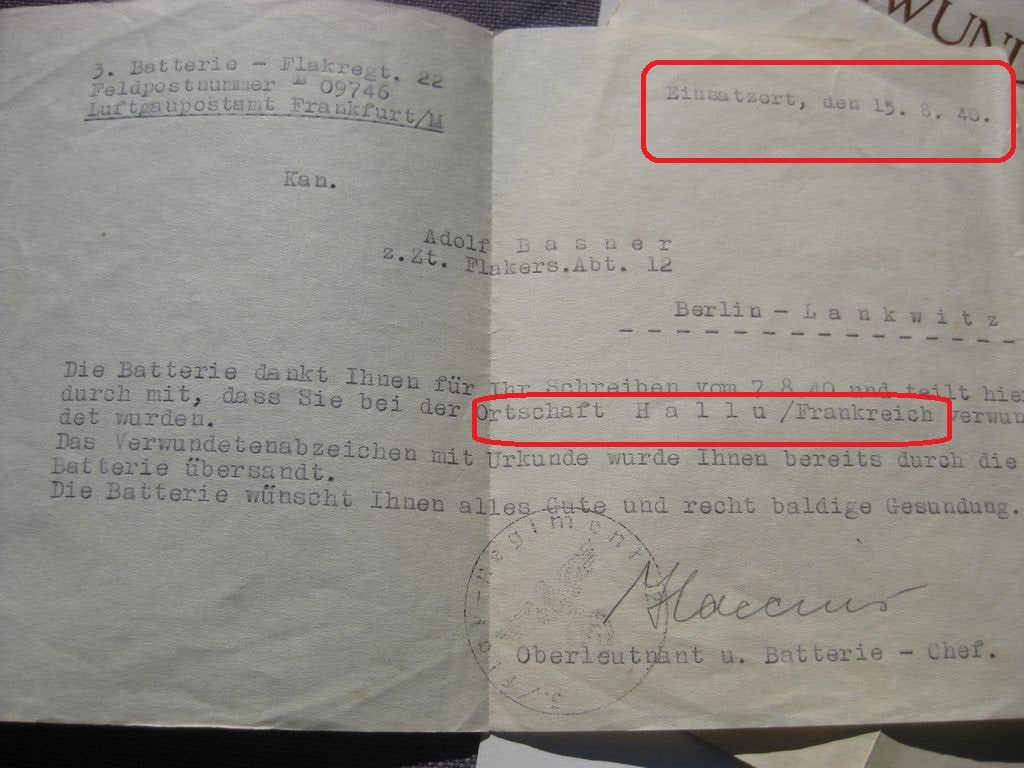 WUN
3. Batterie - Flakregt. 22
Feldpostnummer - 09746
Luftgaupostamt Frankfurt/M
Einsatzort, den 15. 8. 40.
Kan.
Adolf B a s n e r
z.Zt. Flakers.Abt. 12
Berlin - L a n k w i t z
Die Batterie dankt Ihnen für Ihr Schreiben vom 7.8.40 und teilt hier
durch mit, dass Sie bei der Ortschaft H a l l u /Frankreich verwun
det wurden.
Das Verwundetenabzeichen mit Urkunde wurde Ihnen bereits durch die
Batterie übersandt.
Die Batterie wünscht Ihnen alles Gute und recht baldige Gesundung.
Oberleutnant u. Batterie - Chef.